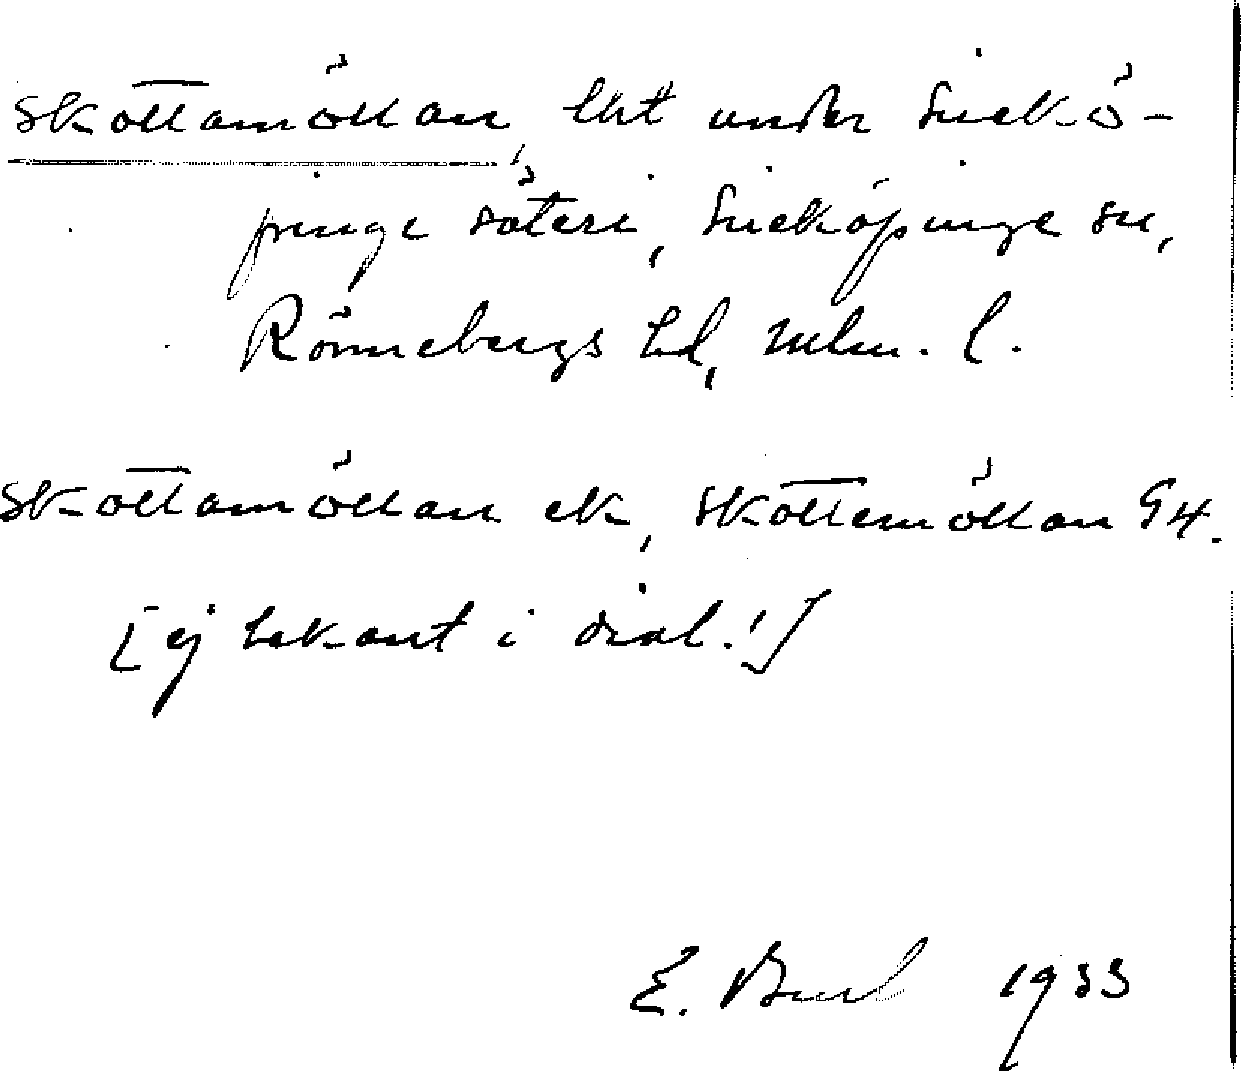 Skottamöllan, lht under Sirekö-
pinge säteri, Sireköpinge sn,
Rönnebergs hd, Mlm. l.
Skottamöllan ek, Skottemöllan
[ej bekant i dial.!]
E. 1933